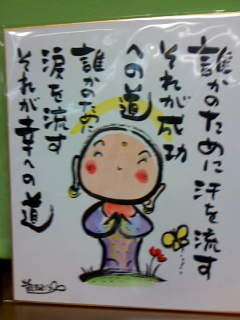 誰かのために汗を流す
それが成功
への道
誰かのために
涙を流す
それが幸への道